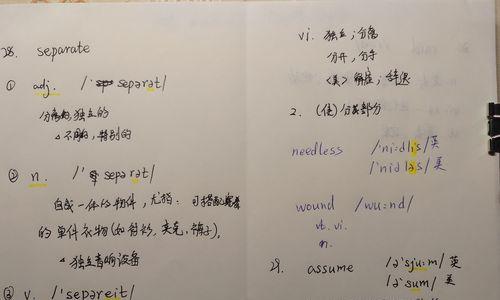 28. separate
① adj. /'sepərət/
分离的,独立的
△ 不同的,特别的
② n. /'sepərət/
自成一体的物件,尤指:可搭配穿着
的单件衣物(如衬衫,夹克,裤子),
△ 独立音响设备
③ v. /'sepəreit/
vi. 独立;分离
分开,分手
<美> 解雇;
2. (使)分成部分
needless /'ni:dlis/英
/'nidləs/美
wound /wu:nd/
vt. vi.
n.
29. assume /ə'sju:m/ 英
/ə'sum/ 美